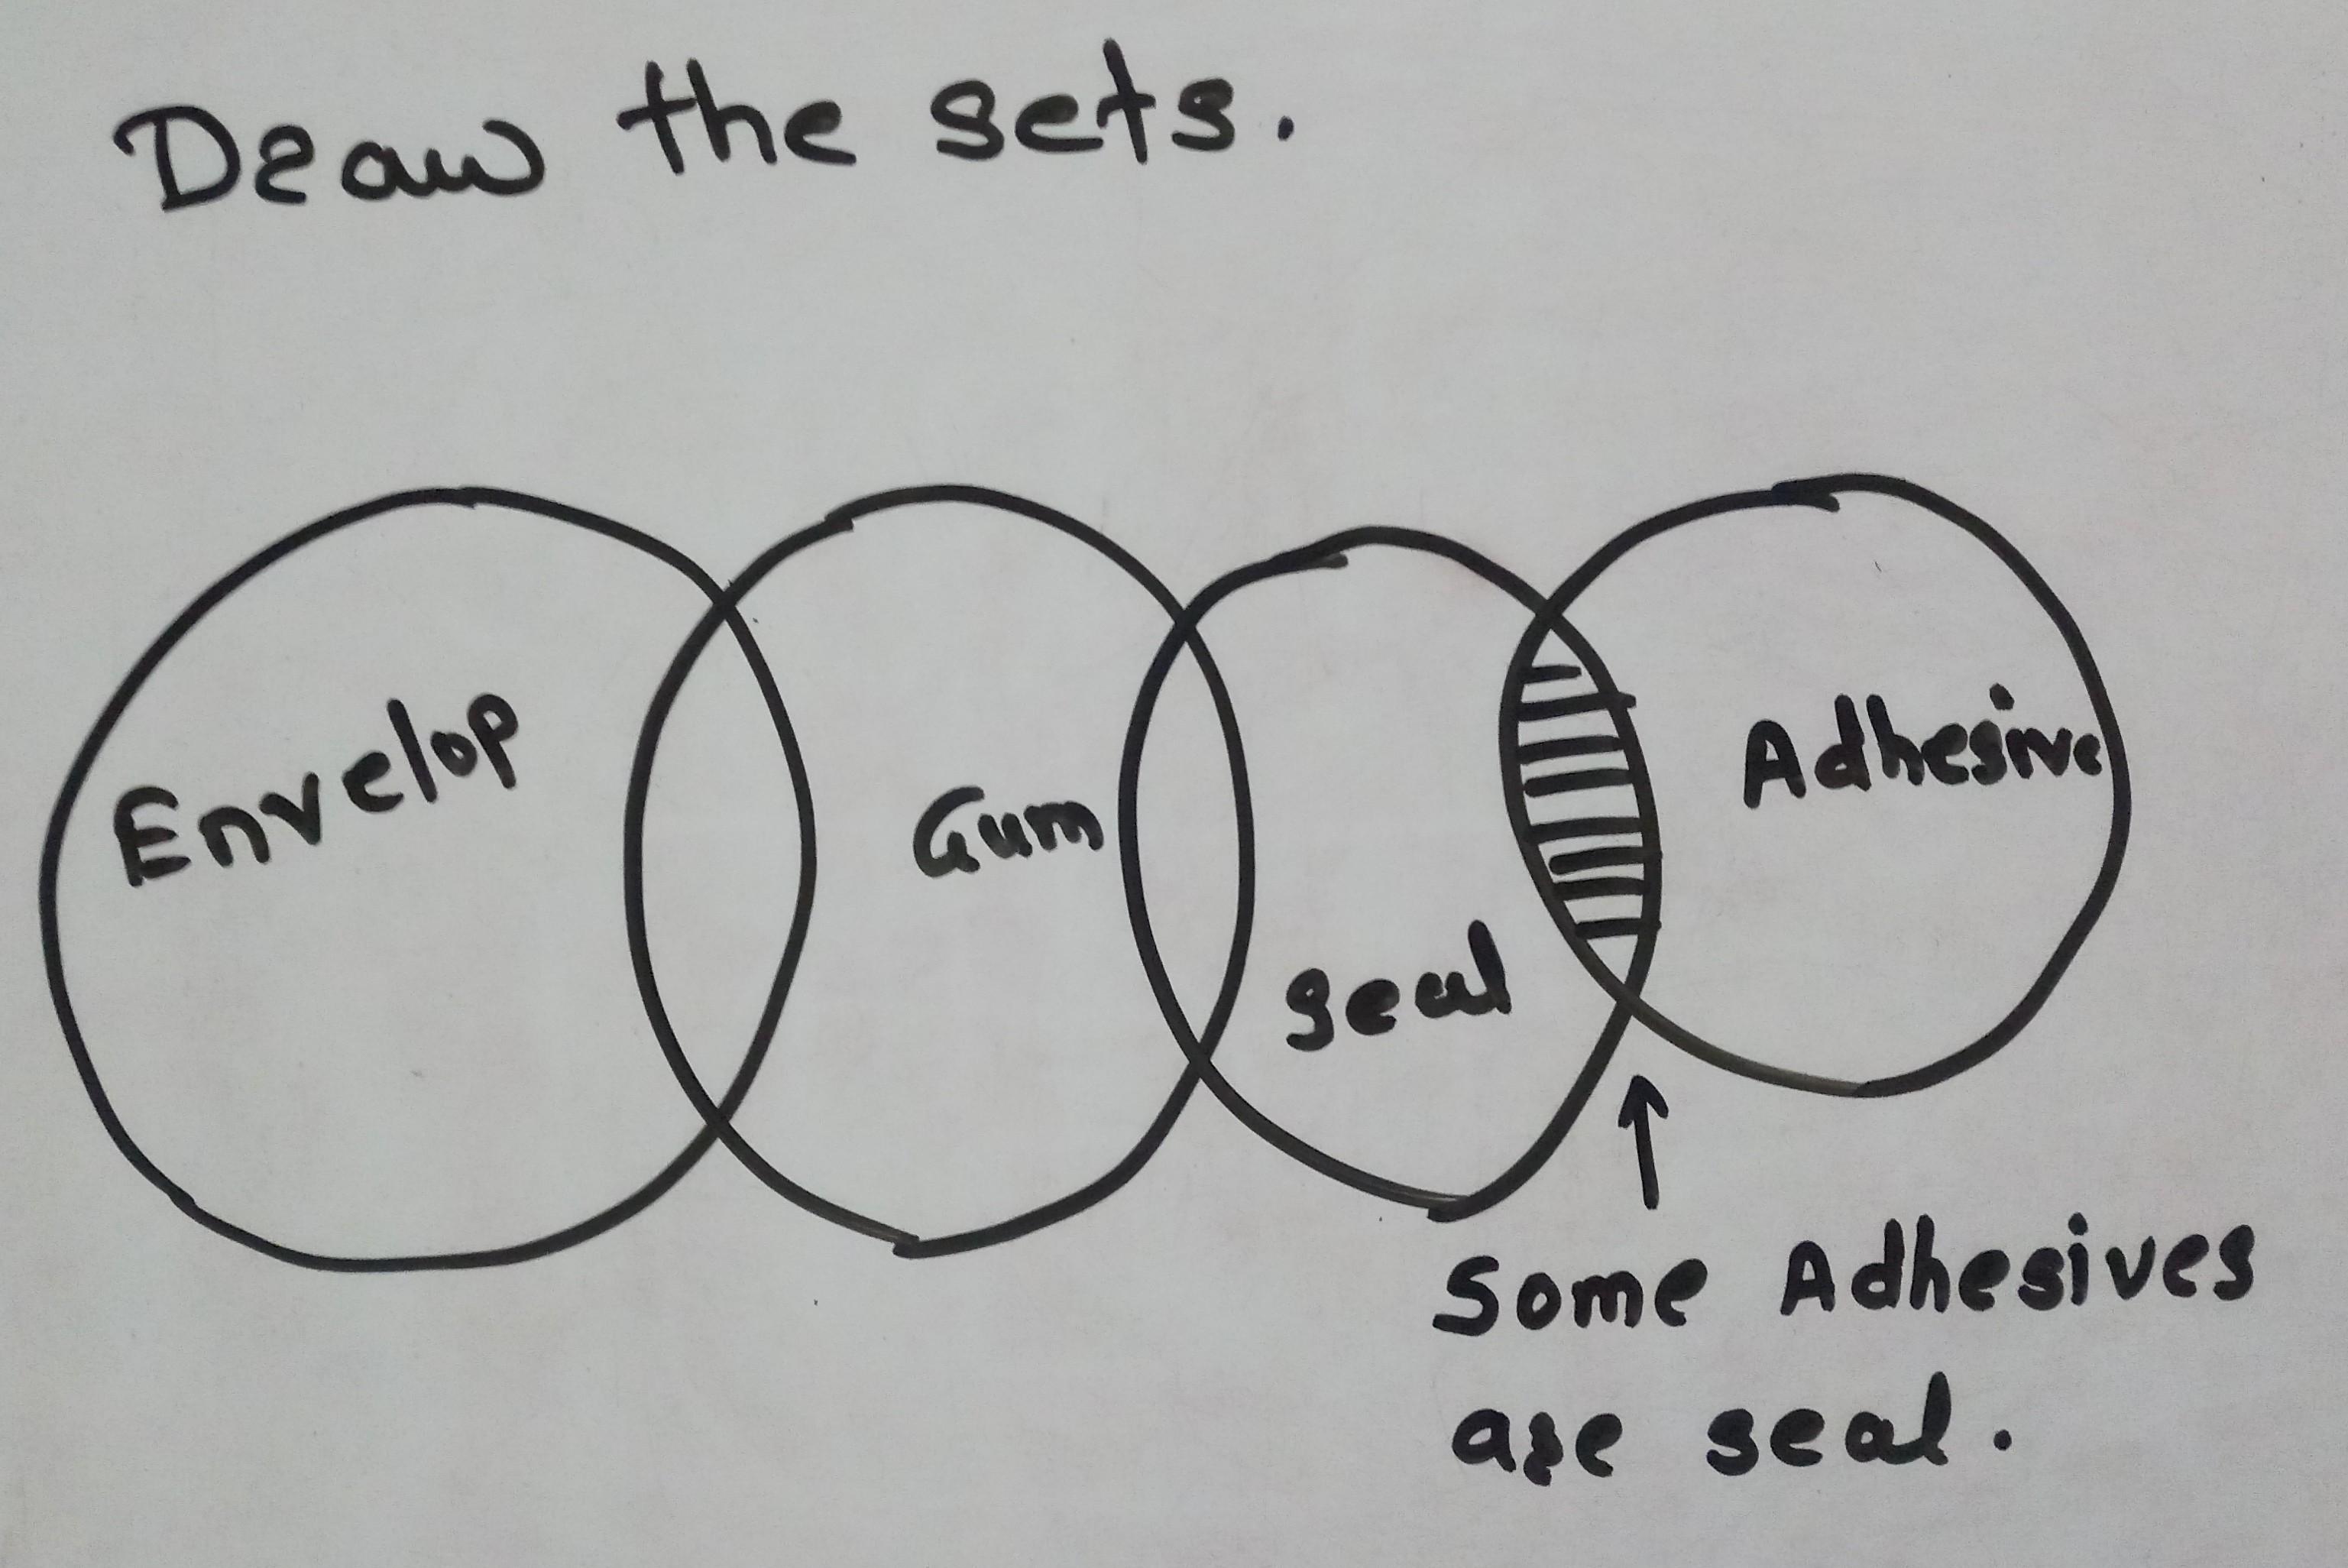 Draw the sets.
Envelop
Gum
seal
Adhesive
Some Adhesives
are seal.